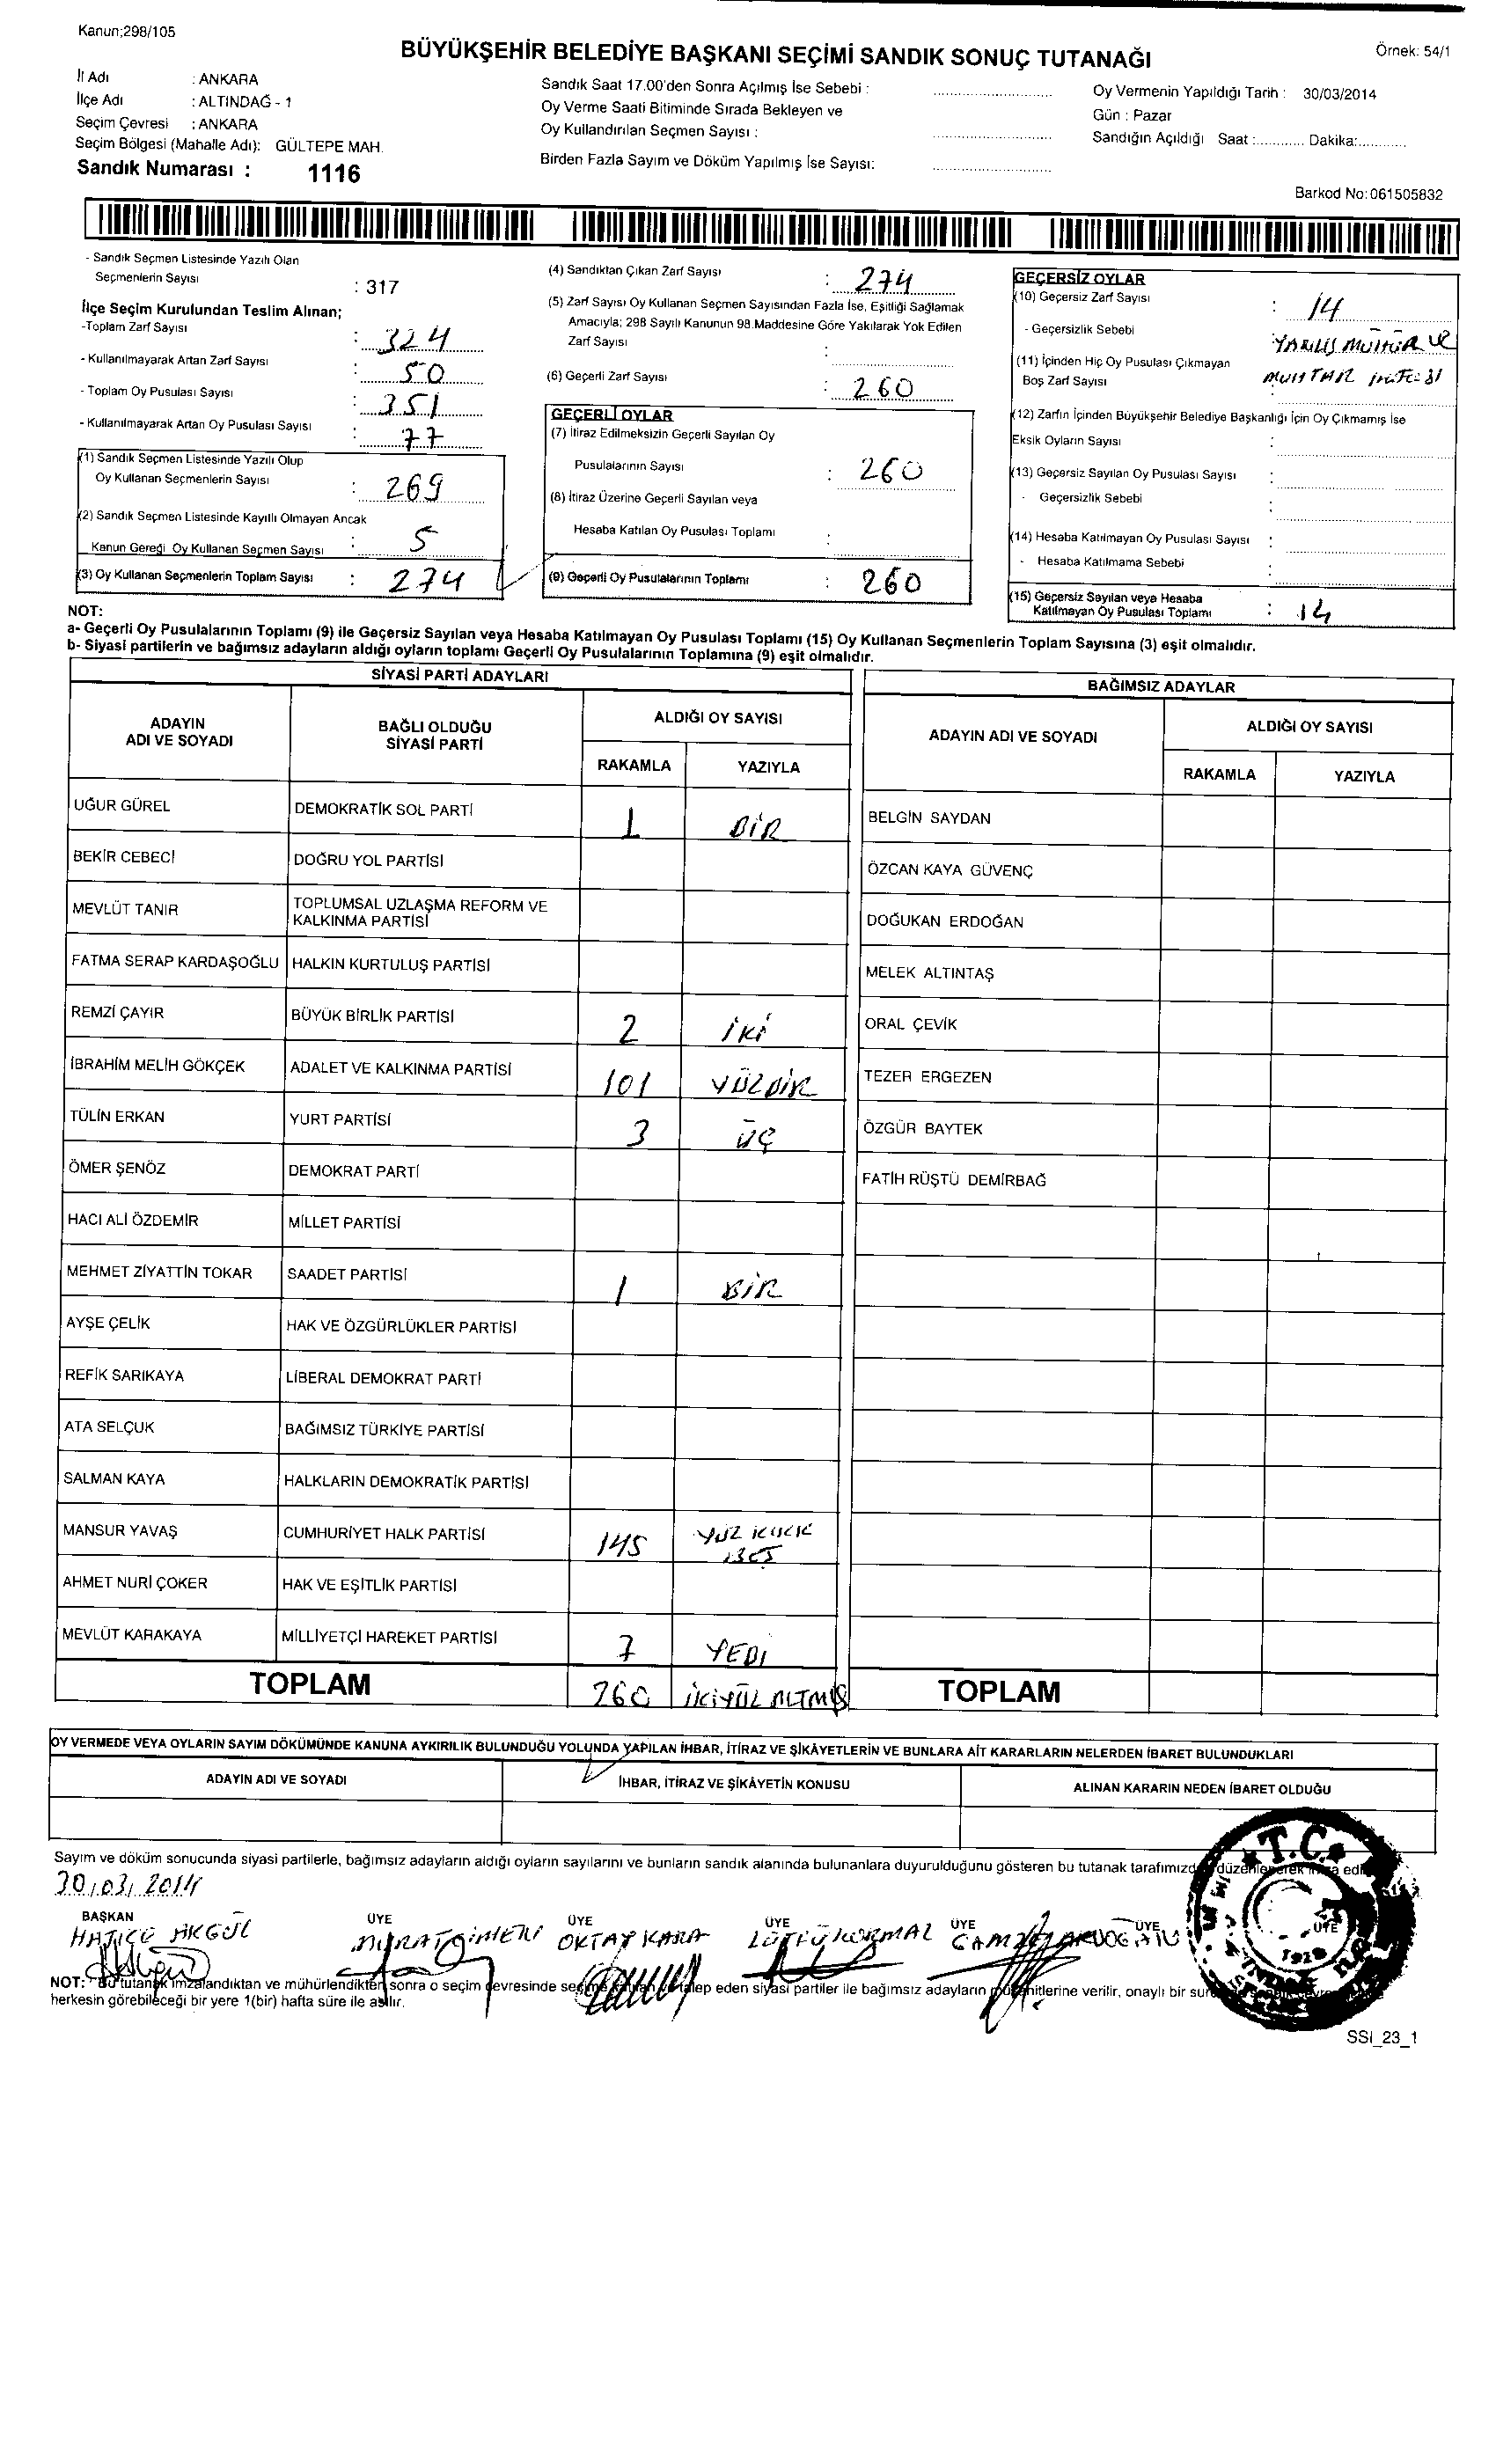 Kanun;298/105
BÜYÜKŞEHİR BELEDİYE BAŞKANI SEÇİMİ SANDIK SONUÇ TUTANAĞI
Örnek: 54/1
İl Adı : ANKARA
İlçe Adı : ALTINDAĞ - 1
Seçim Çevresi : ANKARA
Seçim Bölgesi (Mahalle Adı): GÜLTEPE MAH.
Sandık Numarası : 1116
Sandık Saat 17.00'den Sonra Açılmış İse Sebebi :
Oy Verme Saati Bitiminde Sırada Bekleyen ve
Oy Kullandırılan Seçmen Sayısı :
Birden Fazla Sayım ve Döküm Yapılmış İse Sayısı:
Oy Vermenin Yapıldığı Tarih : 30/03/2014
Gün : Pazar
Sandığın Açıldığı Saat :............ Dakika:............
Barkod No:061505832
- Sandık Seçmen Listesinde Yazılı Olan
Seçmenlerin Sayısı : 317
İlçe Seçim Kurulundan Teslim Alınan;
-Toplam Zarf Sayısı : 324
- Kullanılmayarak Artan Zarf Sayısı : 50
- Toplam Oy Pusulası Sayısı : 351
- Kullanılmayarak Artan Oy Pusulası Sayısı : 77
(1) Sandık Seçmen Listesinde Yazılı Olup
Oy Kullanan Seçmenlerin Sayısı : 269
(2) Sandık Seçmen Listesinde Kayıllı Olmayan Ancak
Kanun Gereği Oy Kullanan Seçmen Sayısı : 5
(3) Oy Kullanan Seçmenlerin Toplam Sayısı : 274
(4) Sandıktan Çıkan Zarf Sayısı : 274
(5) Zarf Sayısı Oy Kullanan Seçmen Sayısından Fazla İse, Eşitliği Sağlamak
Amacıyla; 298 Sayılı Kanunun 98.Maddesine Göre Yakılarak Yok Edilen
Zarf Sayısı :
(6) Geçerli Zarf Sayısı : 260
GEÇERLİ OYLAR
(7) İtiraz Edilmeksizin Geçerli Sayılan Oy
Pusulalarının Sayısı : 260
(8) İtiraz Üzerine Geçerli Sayılan veya
Hesaba Katılan Oy Pusulası Toplamı :
(9) Geçerli Oy Pusulalarının Toplamı : 260
GEÇERSİZ OYLAR
(10) Geçersiz Zarf Sayısı : 14
- Geçersizlik Sebebi : YANLIŞ MÜHÜR VE
(11) İçinden Hiç Oy Pusulası Çıkmayan MUHTAR
Boş Zarf Sayısı :
(12) Zarfın İçinden Büyükşehir Belediye Başkanlığı İçin Oy Çıkmamış İse
Eksik Oyların Sayısı :
(13) Geçersiz Sayılan Oy Pusulası Sayısı :
- Geçersizlik Sebebi :
(14) Hesaba Katılmayan Oy Pusulası Sayısı :
- Hesaba Katılmama Sebebi :
(15) Geçersiz Sayılan veya Hesaba
Katılmayan Oy Pusulası Toplamı : 14
NOT:
a- Geçerli Oy Pusulalarının Toplamı (9) ile Geçersiz Sayılan veya Hesaba Katılmayan Oy Pusulası Toplamı (15) Oy Kullanan Seçmenlerin Toplam Sayısına (3) eşit olmalıdır.
b- Siyasi partilerin ve bağımsız adayların aldığı oyların toplamı Geçerli Oy Pusulalarının Toplamına (9) eşit olmalıdır.
SİYASİ PARTİ ADAYLARI
ADAYIN ADI VE SOYADI
BAĞLI OLDUĞU SİYASİ PARTİ
ALDIĞI OY SAYISI
RAKAMLA YAZIYLA
UĞUR GÜREL DEMOKRATİK SOL PARTİ 1 BİR
BEKİR CEBECİ DOĞRU YOL PARTİSİ
MEVLÜT TANIR TOPLUMSAL UZLAŞMA REFORM VE
KALKINMA PARTİSİ
FATMA SERAP KARDAŞOĞLU HALKIN KURTULUŞ PARTİSİ
REMZİ ÇAYIR BÜYÜK BİRLİK PARTİSİ 2 İKİ
İBRAHİM MELİH GÖKÇEK ADALET VE KALKINMA PARTİSİ 101 YÜZBİR
TÜLİN ERKAN YURT PARTİSİ 3 ÜÇ
ÖMER ŞENÖZ DEMOKRAT PARTİ
HACI ALİ ÖZDEMİR MİLLET PARTİSİ
MEHMET ZİYATTİN TOKAR SAADET PARTİSİ 1 BİR
AYŞE ÇELİK HAK VE ÖZGÜRLÜKLER PARTİSİ
REFİK SARIKAYA LİBERAL DEMOKRAT PARTİ
ATA SELÇUK BAĞIMSIZ TÜRKİYE PARTİSİ
SALMAN KAYA HALKLARIN DEMOKRATİK PARTİSİ
MANSUR YAVAŞ CUMHURİYET HALK PARTİSİ 145 YÜZ KIRK
BEŞ
AHMET NURİ ÇOKER HAK VE EŞİTLİK PARTİSİ
MEVLÜT KARAKAYA MİLLİYETÇİ HAREKET PARTİSİ 7 YEDİ
TOPLAM 260 İKİYÜZ ALTMIŞ
BAĞIMSIZ ADAYLAR
ADAYIN ADI VE SOYADI
ALDIĞI OY SAYISI
RAKAMLA YAZIYLA
BELGİN SAYDAN
ÖZCAN KAYA GÜVENÇ
DOĞUKAN ERDOĞAN
MELEK ALTINTAŞ
ORAL ÇEVİK
TEZER ERGEZEN
ÖZGÜR BAYTEK
FATİH RÜŞTÜ DEMİRBAĞ
TOPLAM
OY VERMEDE VEYA OYLARIN SAYIM DÖKÜMÜNDE KANUNA AYKIRILIK BULUNDUĞU YOLUNDA YAPILAN İHBAR, İTİRAZ VE ŞİKÂYETLERİN VE BUNLARA AİT KARARLARIN NELERDEN İBARET BULUNDUKLARI
ADAYIN ADI VE SOYADI İHBAR, İTİRAZ VE ŞİKÂYETİN KONUSU ALINAN KARARIN NEDEN İBARET OLDUĞU
Sayım ve döküm sonucunda siyasi partilerle, bağımsız adayların aldığı oyların sayılarını ve bunların sandık alanında bulunanlara duyurulduğunu gösteren bu tutanak
30/03/2014
BAŞKAN ÜYE ÜYE ÜYE ÜYE ÜYE ÜYE
HATİCE AKGÜL OKTAY KARA
T.C.
NOT: Bu tutanak imzalandıktan ve mühürlendikten sonra o seçim çevresinde talep eden siyasi partiler ile bağımsız adayların müşahitlerine verilir, onaylı bir
herkesin görebileceği bir yere 1(bir) hafta süre ile asılır.
SSI_23_1